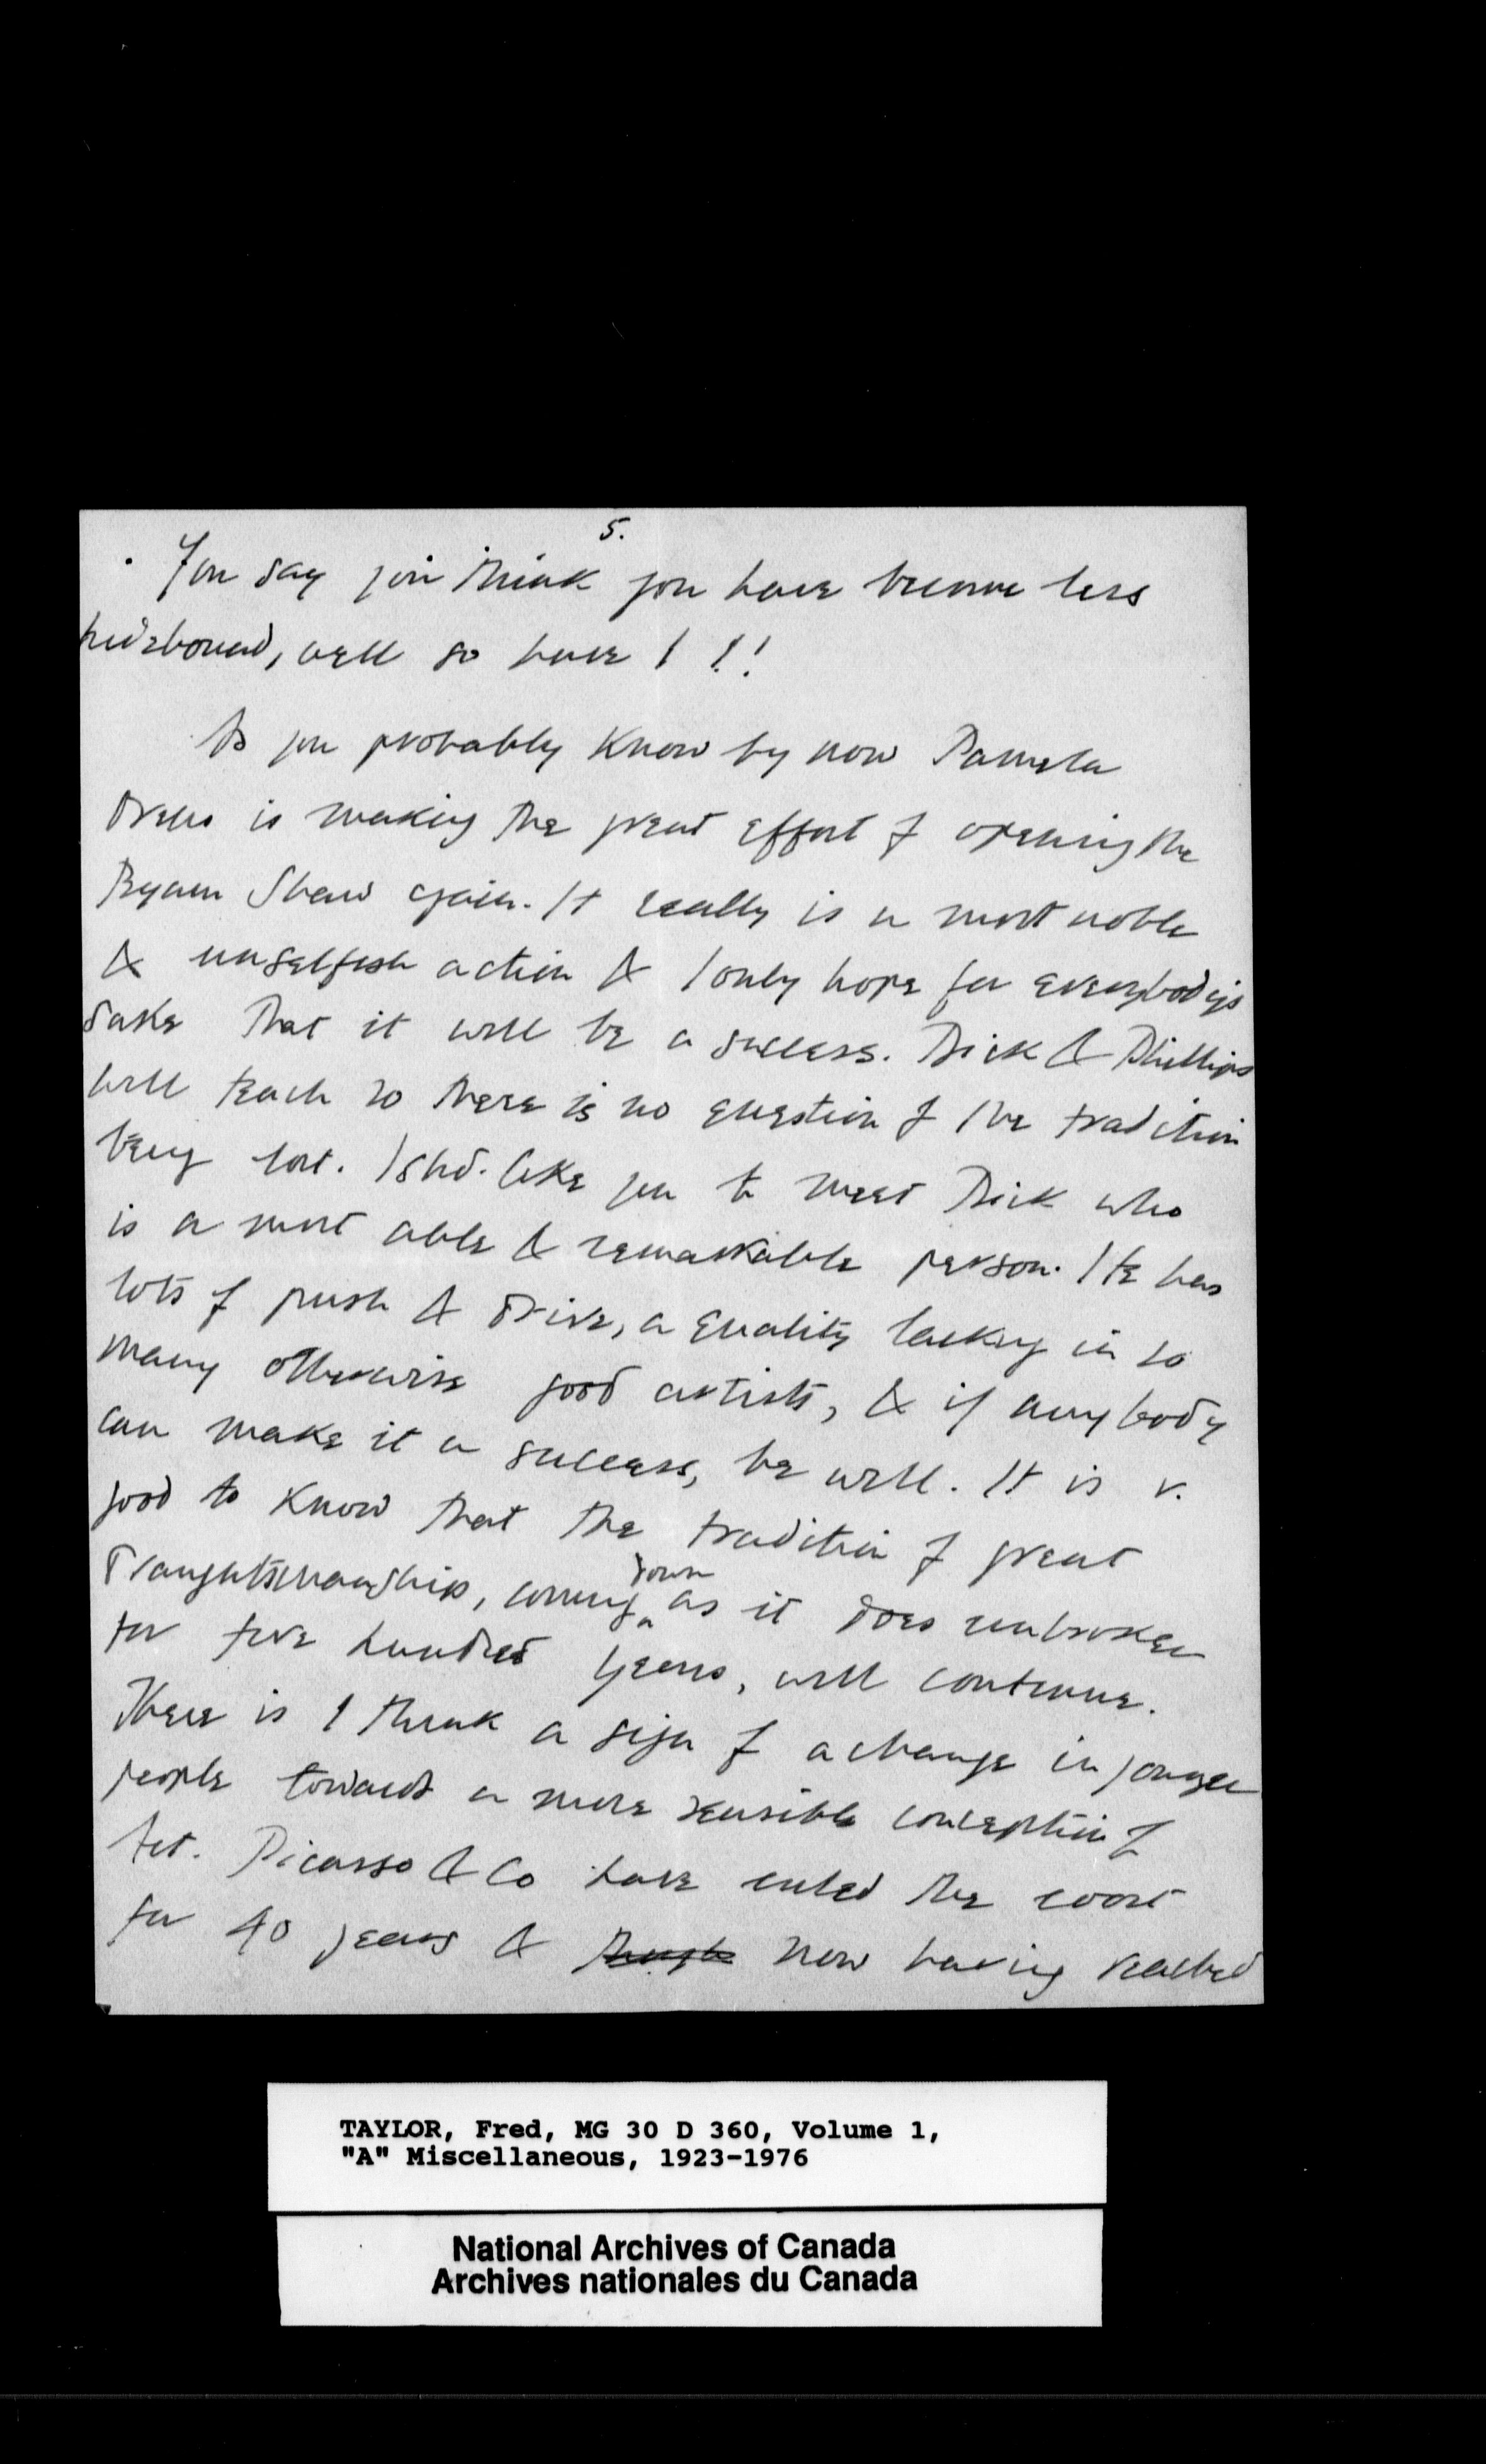 5.
You say you think you have become less
hidebound, well so have I !!
As you probably know by now Pamela
is making the great effort of opening the
Byam Shaw again. It really is a most noble
& unselfish action & I only hope for everybodys
sake that it will be a success. Dick & Phillips
will teach so there is no question of the tradition
being lost. I shd. like you to meet Dick who
is a most able & remarkable person. He has
lots of push & drive, a quality lacking in so
many otherwise good artists, & if anybody
can make it a success, he will. It is v.
good to know that the tradition of great
draughtsmanship, coming down as it does unbroken
for five hundred years, will continue.
There is I think a sign of a change in younger
people towards a more sensible conception of
Art. Picasso & Co have ruled the roost
for 40 years & now having reached
TAYLOR, Fred, MG 30 D 360, Volume 1,
"A" Miscellaneous, 1923-1976
National Archives of Canada
Archives nationales du Canada